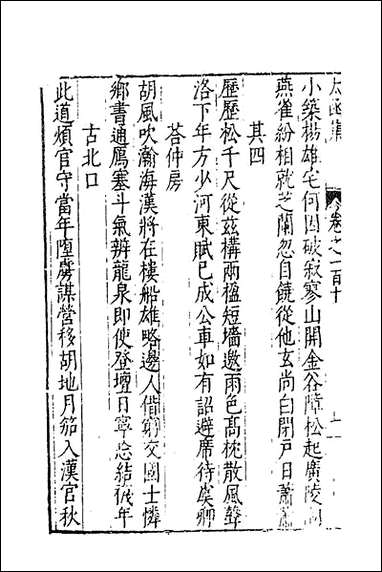 太函集 卷之一百十
小築揚雄宅何因破寂寥山開金谷障松起廣陵
燕雀紛相就芝蘭忽自饒從他玄尚白閉戶日蕭蕭
其四
歷歷松千尺從兹構兩楹短墻邀雨色髙枕散風聲
洛下年方少河東賦已成公車如有詔避席待虞卿
荅仲房
胡風吹瀚海漢將在樓船雄略邊人借窮交國士憐
鄉書通鴈塞斗氣辨龍泉即使登壇日寧忘結襪年
古北口
此道煩官守當年墮虜謀營移胡地月笳入漢宫秋